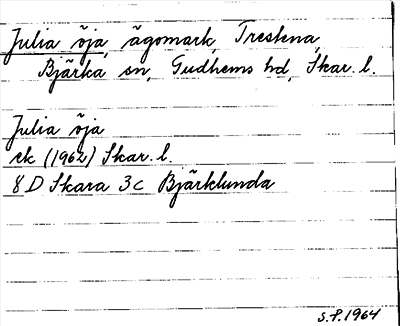 Julia öja, ägomark, Treskna,
Bjärka sn, Gudhems hd, Skar. l.
Julia öja
ek (1962) Skar. l.
8 D Skara 3c Bjärklunda
S.P. 1964